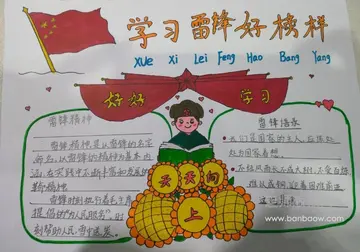 学习雷锋好榜样
Xue Xi Lei Feng Hao Bang Yang
好好 学习
雷锋精神
雷锋精神是以雷锋的名字
命名,以雷锋的精神为基本内
涵,在实践中不断丰富和发展的
提倡的"为人民服务"
雷锋语录
我们是国家的主人,应该处
处为国家着想。
天天向
上
www.banbaow.com